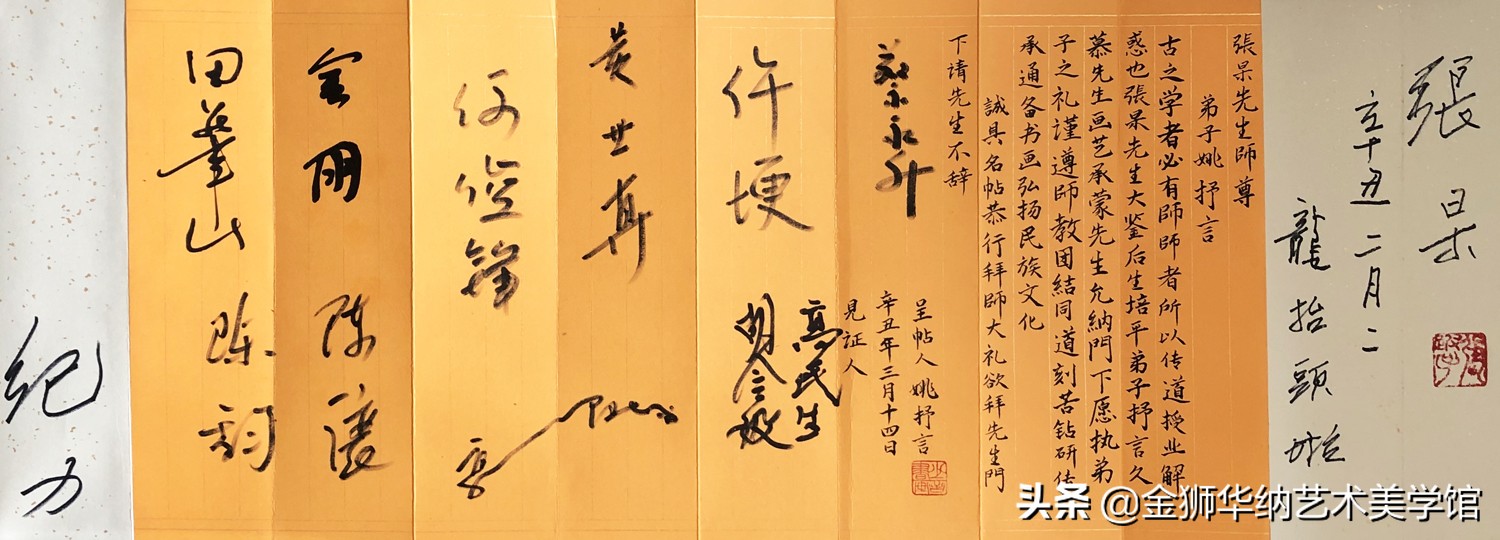 張杲
辛丑二月二
龍抬頭
張杲先生師尊
弟子姚抒言
古之学者必有師師者所以传道授业解
惑也張杲先生大鉴后生培平弟子抒言久
慕先生画艺承蒙先生允納門下愿执弟
子之礼谨遵師教团結同道刻苦钻研传
承通备书画弘扬民族文化
誠具名帖恭行拜師大礼欲拜先生門
下请先生不辞
呈帖人姚抒言
辛丑年三月十四日
見证人
蔡永升
高民生
许埂
黄世奇
金明
陈谦
田華山
陈韵
纪力
头条 @金狮华纳艺术美学馆